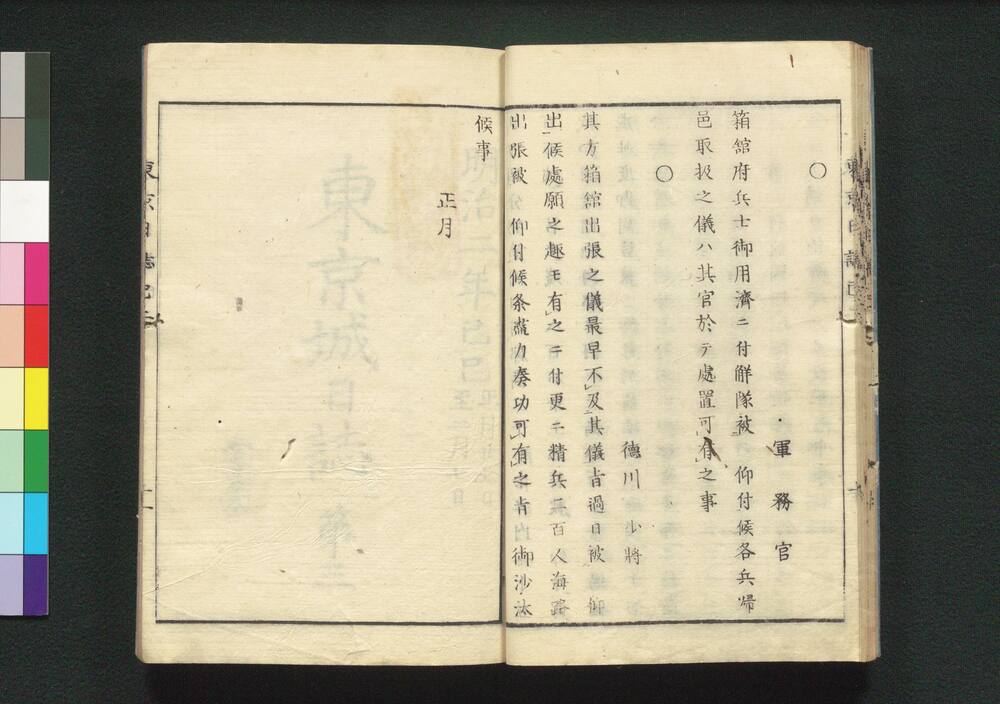 ○
軍務官
箱舘府兵士御用濟ニ付解隊被　仰付候各兵歸
邑取扱之儀ハ其官於テ處置可有之事
○
德川少將
其方箱舘出張之儀最早不及其儀旨過日被　仰
出候處願之趣モ有之ニ付更ニ精兵二百人海路
出張被　仰付候条盡力奏功可有之旨御沙汰
候事
正月
東京日誌